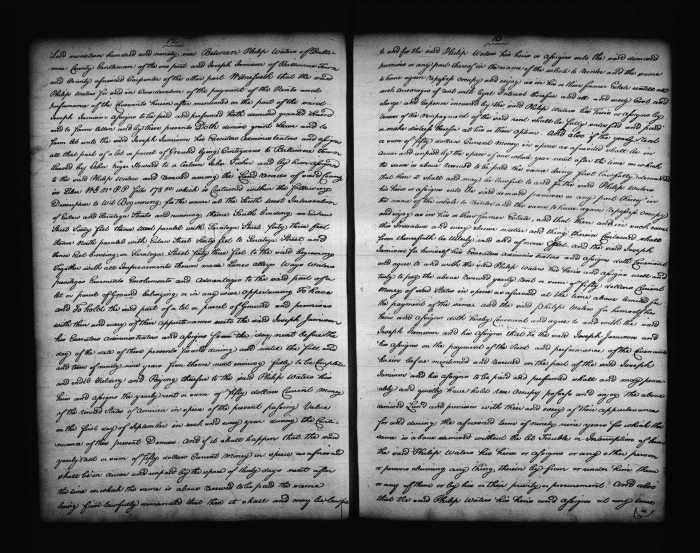 Lord seventeen hundred and ninety one Between Philip Waters of Balti
more County Gentleman of the one part and Joseph Jamison of Baltimore Town
and County aforesaid Carpenter of the other part Witnesseth that the said
Philip Waters for and in Consideration of the payment of the Rents and
performance of the Covenants herein after mentioned on the part of the said
Joseph Jamison Assigns to be paid and performed Hath demised granted Leased
and to farm Letten and by these presents Doth demise grant Lease and to
farm let unto the said Joseph Jamison his Executors Administrators and Assigns
all that part of a Lot or parcel of Ground lying Contiguous to Baltimore Town
Leased by to a Fisher and by him Assigned
to the said Philip Waters and Recorded among the Land Records of said County
in Liber W.G. No which is Contained within the following
Description to wit Beginning for the same at the South west Intersection
of Eutaw and Saratoga Streets and running thence South binding on Eutaw
Street Sixty feet thence west parallel with Saratoga Street forty three feet
thence North parallel with Eutaw Street Sixty feet to Saratoga Street and
thence East binding on Saratoga Street forty three feet to the said beginning
Together with all Improvements thereon made Lanes alleys Ways Waters
privileges Easements Emoluments and Advantages to the said part of a
lot or parcel of Ground belonging or in any wise Appertaining To have
and To hold the said part of a lot or parcel of Ground and premises
with their and every of their Appurtenances unto the said Joseph Jamison
his Executors Administrators and Assigns from the day next before the
day of the date of these presents for and during and until the full end
and term of ninety nine years from thence next ensuing fully to be Compleat
and ended Yielding and Paying therefor to the said Philip Waters his
heirs and Assigns the yearly rent or sum of fifty dollars Current Money
of the United States of America in specie of the present passing Value
on the first day of September in each and every year during the Conti
nuance of this present Demise. And if it shall happen that the said
yearly rent or sum of fifty dollars Current Money in specie as aforesaid
shall be in arrear and unpaid by the space of thirty days next after
the time on which the same is above Reserved to be paid the same
being first lawfully demanded that then it shall and may be lawful
to and for the said Philip Waters his heirs or Assigns into the said demised
premises or any part thereof in the name of the whole to Reenter and the same
to have again Repossess occupy and enjoy as in his or their former Estate until all
such Arrearages of rent with legal Interest thereon and all and every Cost and
charge and expence incurred by the said Philip Waters his heirs or Assigns by
reason of the nonpayment of the said rent shall be fully satisfied and paid
or make distress therefor at his or their option. And also if the yearly rent
or sum of fifty dollars Current Money in specie as aforesaid shall be in
arrear and unpaid by the space of one whole year next after the time on which
the same is above Reserved to be paid the same being first lawfully demanded
that then it shall and may be lawful to and for the said Philip Waters
his heirs or Assigns into the said demised premises or any part thereof in
the name of the whole to Reenter and the same to have again Repossess occupy
and enjoy as in his or their former Estate and that then and in such case
this Indenture and every clause matter and thing therein Contained shall
from thenceforth be Utterly void and of none effect. And the said Joseph
Jamison for himself his Executors Administrators and Assigns doth Covenant
and agree to and with the said Philip Waters his heirs and Assigns well and
truly to pay the above reserved yearly rent or sum of fifty dollars Current
Money of said State in specie as aforesaid at the time above limited for
the payment of the same and the said Philip Waters for himself his
heirs and Assigns doth hereby Covenant and agree to and with the said
Joseph Jamison and his Assigns that he the said Joseph Jamison and
his Assigns on the payment of the Rent and performance of the Covenants
herein before mentioned and reserved on the part of the said Joseph
Jamison and his Assigns to be paid and performed shall and may peace
ably and quietly have hold use occupy possess and enjoy the above
demised Land and premises with their and every of their appurtenances
for and during the aforesaid term of ninety nine years for which the
same is above demised without the let Trouble or Interruption of him
the said Philip Waters his heirs or Assigns or any other person
or persons claiming any thing therein by from or under him them
or any of them or by his or their privity or procurement. And also
that the said Philip Waters his heirs and Assigns at any time